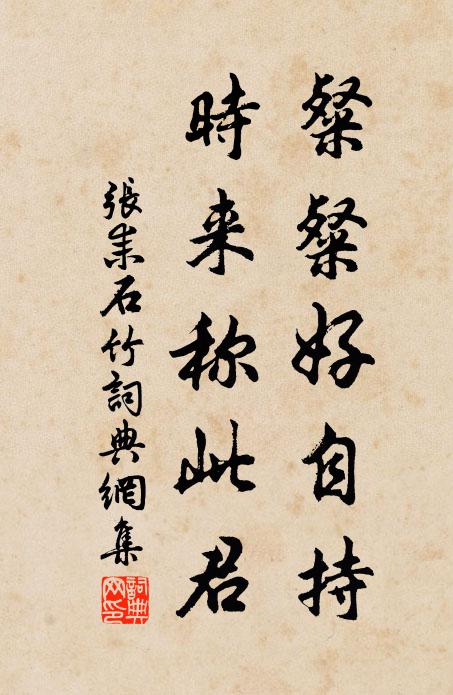 粲粲好自持
時来称此君
張耒石竹詞典網集
詞典
网印